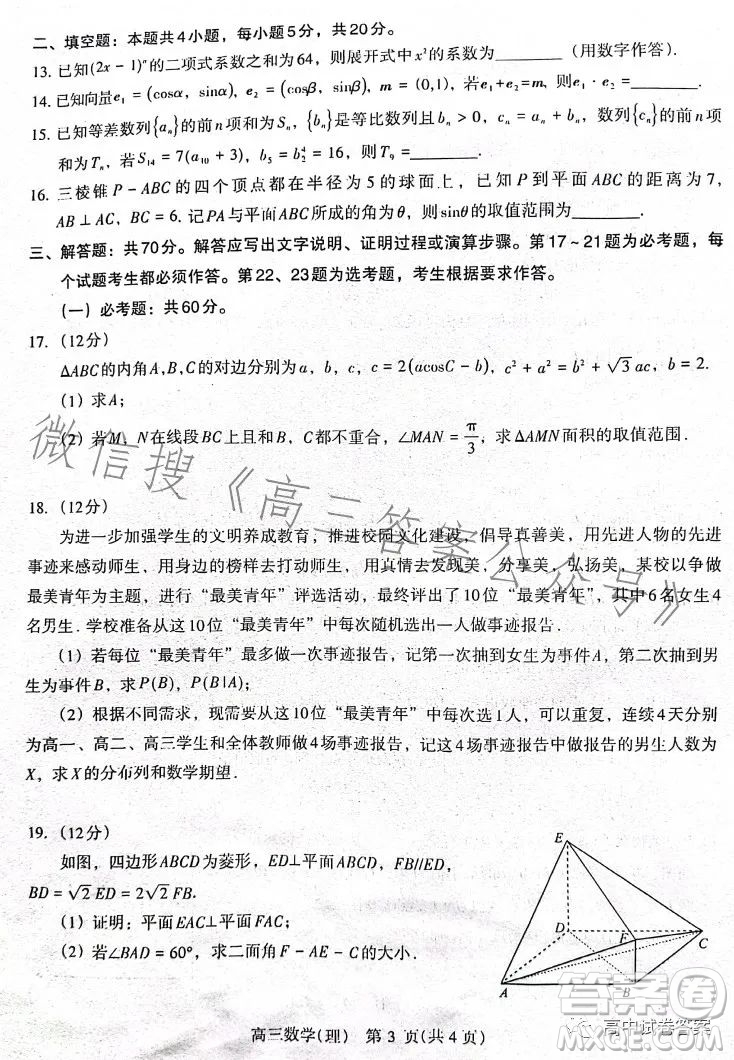 二、填空题：本题共4小题，每小题5分，共20分.
13. 已知(2x - 1)ⁿ的二项式系数之和为64，则展开式中x³的系数为________（用数字作答）.
14. 已知向量e₁ = (cosα，sinα)，e₂ = (cosβ，sinβ)，m = (0,1)，若e₁+e₂=m，则e₁·e₂=________.
15. 已知等差数列{aₙ}的前n项和为Sₙ，{bₙ}是等比数列且bₙ > 0，cₙ = aₙ + bₙ，数列{cₙ}的前n项
和为Tₙ，若S₁₄ = 7(a₁₀ + 3)，b₅ = b₂⁴ = 16，则T₉ = ________.
16. 三棱锥P - ABC的四个顶点都在半径为5的球面上，已知P到平面ABC的距离为7，
AB⊥AC，BC = 6. 记PA与平面ABC所成的角为θ，则sinθ的取值范围为________.
三、解答题：共70分。解答应写出文字说明、证明过程或演算步骤。第17~21题为必考题，每
个试题考生都必须作答。第22、23题为选考题，考生根据要求作答。
（一）必考题：共60分。
17.（12分）
ΔABC的内角A,B,C的对边分别为a，b，c，c = 2(acosC - b)，c² + a² = b² + √3ac，b = 2.
（1）求A；
（2）若M、N在线段BC上且和B，C都不重合，∠MAN = π/3，求ΔAMN面积的取值范围.
18.（12分）
为进一步加强学生的文明养成教育，推进校园文化建设，倡导真善美，用先进人物的先进
事迹来感动师生，用身边的榜样去打动师生，用真情去发现美、分享美、弘扬美，某校以争做
最美青年为主题，进行“最美青年”评选活动，最终评出了10位“最美青年”，其中6名女生4
名男生. 学校准备从这10位“最美青年”中每次随机选出一人做事迹报告.
（1）若每位“最美青年”最多做一次事迹报告，记第一次抽到女生为事件A，第二次抽到男
生为事件B，求P(B)，P(B|A)；
（2）根据不同需求，现需要从这10位“最美青年”中每次选1人，可以重复，连续4天分别
为高一、高二、高三学生和全体教师做4场事迹报告，记这4场事迹报告中做报告的男生人数为
X，求X的分布列和数学期望.
19.（12分）
如图，四边形ABCD为菱形，ED⊥平面ABCD，FB//ED，
BD = √2ED = 2√2FB.
（1）证明：平面EAC⊥平面FAC；
（2）若∠BAD = 60°，求二面角F - AE - C的大小.
E
D
F
C
A
B
高三数学（理） 第 3 页（共 4 页）
微信搜《高三答案公众号》
答案圈
高中试卷答案